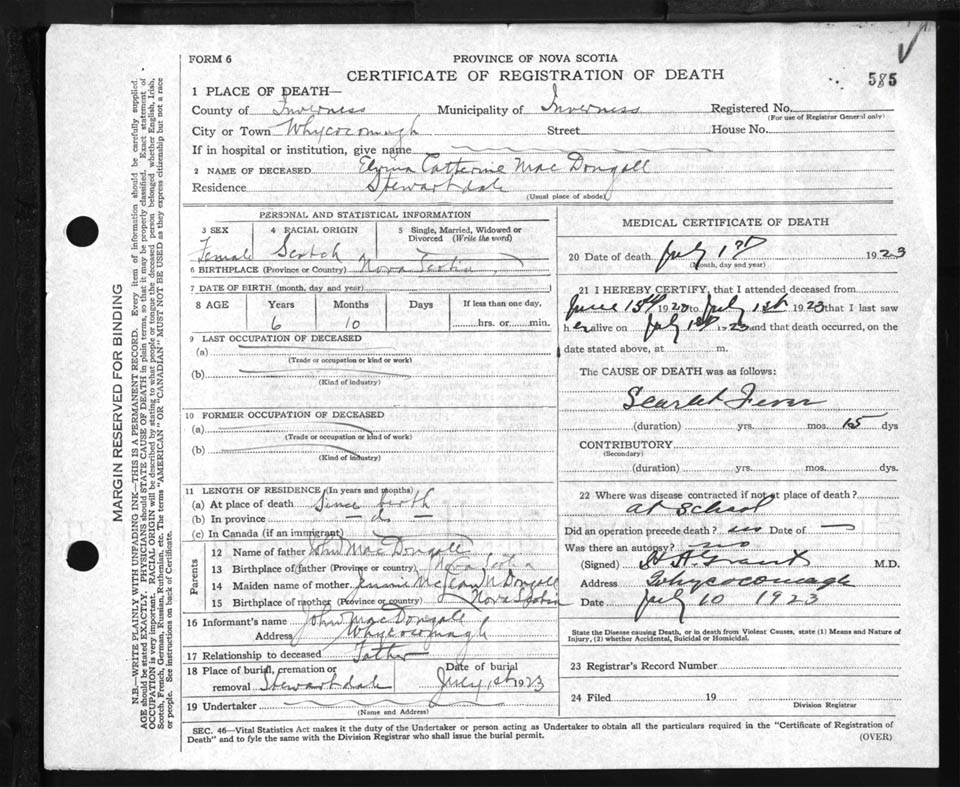 FORM 6
PROVINCE OF NOVA SCOTIA
CERTIFICATE OF REGISTRATION OF DEATH
585
1 PLACE OF DEATH—
County of Inverness Municipality of Inverness Registered No.
(For use of Registrar General only)
City or Town Whycocomagh Street House No.
If in hospital or institution, give name
2 NAME OF DECEASED Catherine MacDougall
Residence Stewartdale
(Usual place of abode)
PERSONAL AND STATISTICAL INFORMATION
3 SEX 4 RACIAL ORIGIN 5 Single, Married, Widowed or Divorced (Write the word)
Female Scotch
6 BIRTHPLACE (Province or Country) Nova Scotia
7 DATE OF BIRTH (month, day and year)
8 AGE Years Months Days If less than one day,
6 10 hrs. or min.
9 LAST OCCUPATION OF DECEASED
(a)
(Trade or occupation or kind or work)
(b)
(Kind of industry)
10 FORMER OCCUPATION OF DECEASED
(a)
(Trade or occupation or kind or work)
(b)
(Kind of industry)
11 LENGTH OF RESIDENCE (In years and months)
(a) At place of death Since birth
(b) In province — do —
(c) In Canada (if an immigrant)
Parents
12 Name of father John MacDougall
13 Birthplace of father (Province or country) Nova Scotia
14 Maiden name of mother Jennie McDougall
15 Birthplace of mother (Province or country) Nova Scotia
16 Informant's name John MacDougall
Address Whycocomagh
17 Relationship to deceased Father
18 Place of burial, cremation or removal Stewartdale Date of burial July 1st 1923
19 Undertaker
(Name and Address)
MEDICAL CERTIFICATE OF DEATH
20 Date of death July 1st 1923
(Month, day and year)
21 I HEREBY CERTIFY, that I attended deceased from
June 15th 1923 to July 1st 1923 that I last saw
her alive on July 1st 1923 and that death occurred, on the
date stated above, at m.
The CAUSE OF DEATH was as follows:
Scarlet Fever
(duration) yrs. mos. 15 dys
CONTRIBUTORY
(Secondary)
(duration) yrs. mos. dys.
22 Where was disease contracted if not at place of death?
at School
Did an operation precede death? no Date of —
Was there an autopsy? no
(Signed) Grant M.D.
Address Whycocomagh
Date July 10 1923
State the Disease causing Death, or in death from Violent Causes, state (1) Means and Nature of
Injury, (2) whether Accidental, Suicidal or Homicidal.
23 Registrar's Record Number
24 Filed 19
Division Registrar
SEC. 46—Vital Statistics Act makes it the duty of the Undertaker or person acting as Undertaker to obtain all the particulars required in the "Certificate of Registration of
Death" and to fyle the same with the Division Registrar who shall issue the burial permit.
(OVER)
MARGIN RESERVED FOR BINDING
N.B.—WRITE PLAINLY WITH UNFADING INK—THIS IS A PERMANENT RECORD. Every item of information should be carefully supplied.
AGE should be stated EXACTLY. PHYSICIANS should STATE CAUSE OF DEATH in plain terms, so that it may be properly classified. Exact statement of
OCCUPATION is very important. RACIAL ORIGIN will be described by stating to what people or tongue the deceased person belonged whether English, Irish,
Scotch, French, German, Russian, Ruthenian, etc. The terms "AMERICAN" OR "CANADIAN" MUST NOT BE USED as they express citizenship but not a race
or people. See instructions on back of Certificate.